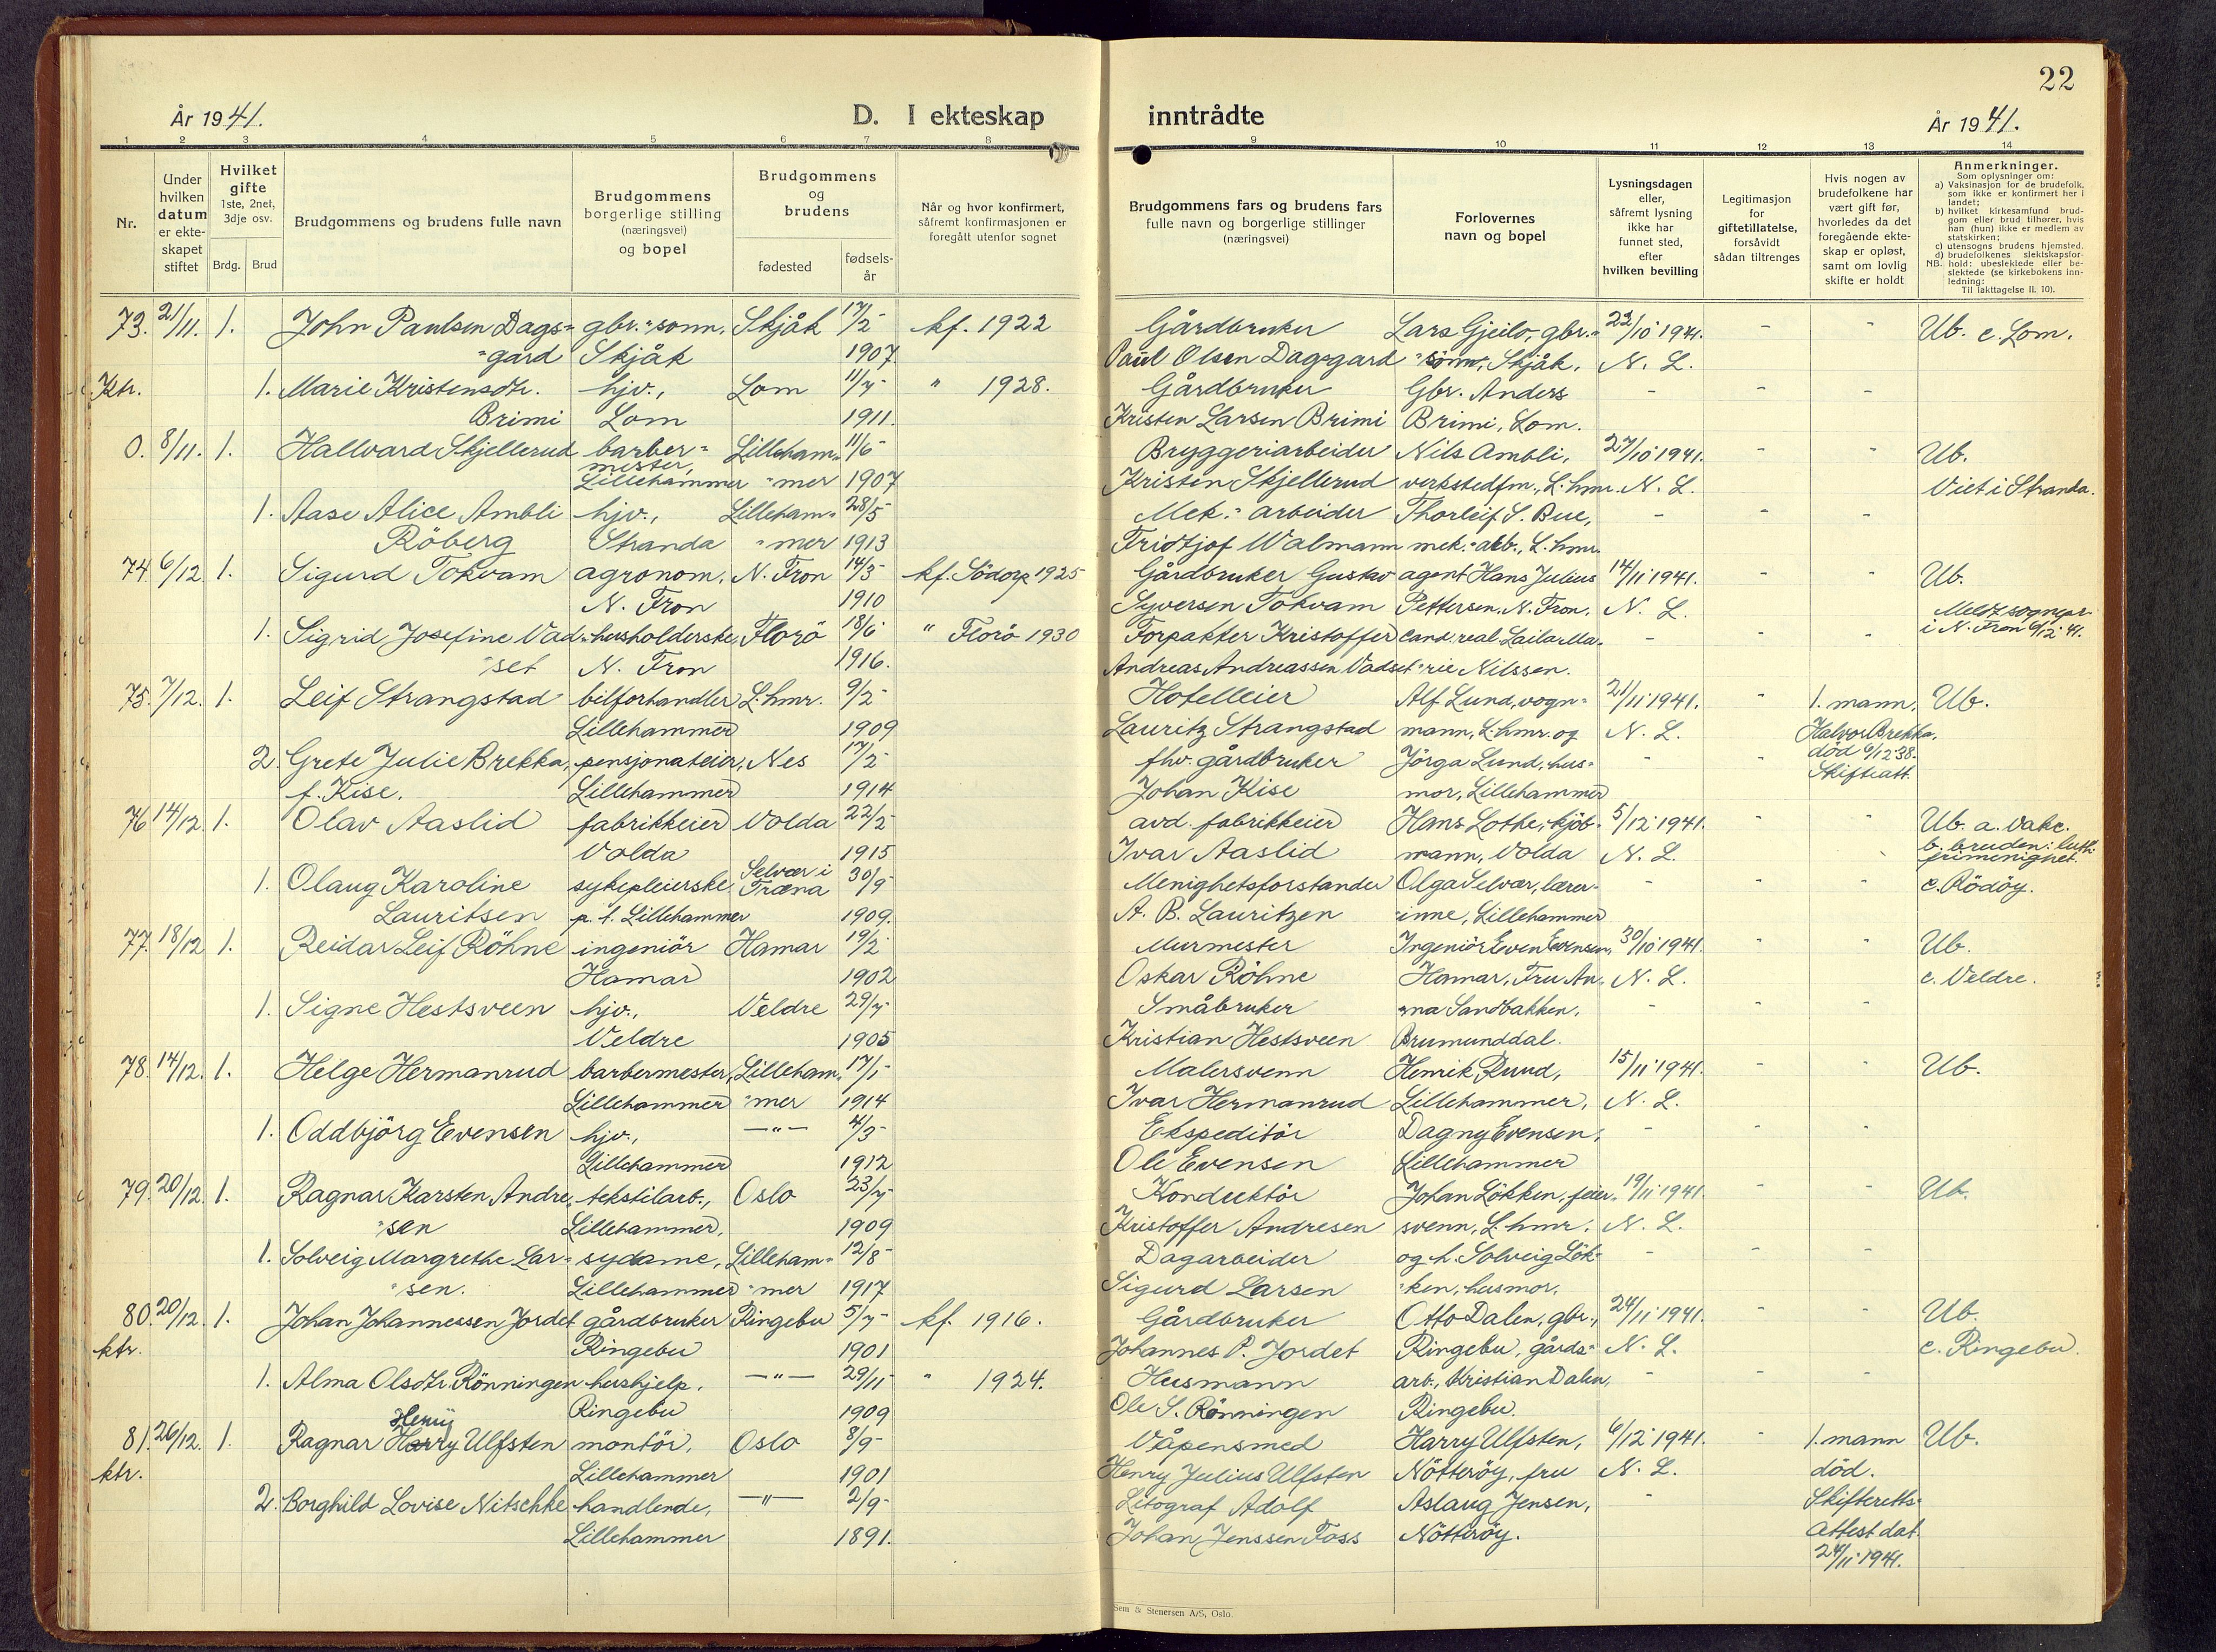 22
År 1941.
D. I ekteskap inntrådte
År 1941.
1 2 3 4 5 6 7 8 9 10 11 12 13 14
Nr.
Under hvilken datum er ekteskapet stiftet
Hvilket gifte 1ste, 2net, 3dje osv.
Brdg. Brud
Brudgommens og brudens fulle navn
Brudgommens borgerlige stilling (næringsvei) og bopel
Brudgommens og brudens
fødested
fødselsår
Når og hvor konfirmert, såfremt konfirmasjonen er foregått utenfor sognet
Brudgommens fars og brudens fars fulle navn og borgerlige stillinger (næringsvei)
Forlovernes navn og bopel
Lysningsdagen eller, såfremt lysning ikke har funnet sted, efter hvilken bevilling
Legitimasjon for giftetillatelse, forsåvidt sådan tiltrenges
Hvis nogen av brudefolkene har vært gift før, hvorledes da det foregående ekteskap er opløst, samt om lovlig skifte er holdt
Anmerkninger.
Som oplysninger om:
a) Vaksinasjon for de brudefolk, som ikke er konfirmert her i landet;
b) hvilket kirkesamfund brudgom eller brud tilhører, hvis han (hun) ikke er medlem av statskirken;
c) utensogns brudens hjemsted.
d) brudefolkenes slektskapsforhold: ubeslektede eller beslektede (se kirkebokens innledning:
NB.
Til iakttagelse II. 10).
73. 21/11. 1. John Paulsen Dags= gbr.=sønn, Skjåk 17/2 kf. 1922 Gårdbruker Lars Gjeilo, gbr.= 22/10 1941. - - Ub. c. Lom.
=gard Skjåk 1907 Paul Olsen Dagsgard =sønn, Skjåk. N. L.
Ktr. 1. Marie Kristensdtr. hjv., Lom 11/7 " 1928. Gårdbruker Gbr. Anders - - -
Brimi Lom 1911. Kristen Larsen Brimi Brimi, Lom.
0. 8/11. 1. Hallvard Skjellerud barber= Lilleham= 11/6 Bryggeriarbeider Nils Ambli, 27/10 1941. - - Ub.
mester, Lillehammer =mer 1907 Kristen Skjellerud verkstedfm., L.hmr. N. L. Viet i Stranda.
1. Aase Alice Ambli hjv., Lilleham= 28/5 Mek.=arbeider Thorleif S. Bue, - - -
Röberg Stranda =mer 1913 Fridtjof Walmann mek.=arb., L.hmr.
74. 6/12 1. Sigurd Tokvam agronom, N. Fron 14/3 kf. Södorp 1925 Gårdbruker Gustav agent Hans Julius 14/11 1941. - - Ub.
N. Fron 1910 Syversen Tokvam Pettersen, N. Fron. N. L. Meldt sognepr. i N. Fron 9/12 41.
1. Sigrid Josefine Vad= husholderske, Florö 18/6 " Florö 1930 Forpakter Kristoffer cand. real. Laila Ma= - - -
=set N. Fron 1916. Andreas Andreassen Vadset =rie Nilssen.
75. 7/12. 1. Leif Strangstad bilforhandler L.hmr. 9/2 Hotelleier Alf Lund, vogn= 21/11 1941. - 1. mann, Ub.
Lillehammer 1909 Lauritz Strangstad mann, L.hmr. og N. L. Halvor Brekka,
2. Grete Julie Brekka, pensjonateier, Nes 17/2 fhv. gårdbruker Jörga Lund, hus= - - död 6/12 38.
f. Kise. Lillehammer 1914 Johan Kise mor, Lillehammer Skifteatt.
76 14/12. 1. Olav Aaslid fabrikkeier Volda 22/2 avd. fabrikkeier Hans Lothe, kjöb= 5/12 1941. - Ub. a. vakc.
Volda 1915 Ivar Aaslid mann, Volda N. L. b. bruden: luth. frimenighet.
1. Olaug Karoline sykepleierske Selvær i Træna 30/9 Menighetsforstander Olga Selvær, lærer= - - - c. Rödöy.
Lauritsen p.t. Lillehammer 1909. A. B. Lauritzen =inne, Lillehammer
77. 18/12 1. Reidar Leif Röhne ingeniör Hamar 19/2 Murmester Ingeniör Even Evensen, 30/10 1941. - - Ub.
Hamar 1902 Oskar Röhne Hamar, Fru An= N. L. c. Veldre.
1. Signe Hestsveen hjv., Veldre 29/7 Småbruker =na Sandbakken, - - -
Veldre 1905 Kristian Hestsveen Brumunddal.
78. 14/12. 1. Helge Hermanrud barbermester, Lilleham= 17/1 Malersvenn Henrik Ruud, 15/11 1941. - - Ub.
Lillehammer =mer 1914 Ivar Hermanrud Lillehammer, N. L.
1. Oddbjörg Evensen hjv., —"— 4/3 Ekspeditör Dagny Evensen, - - -
Lillehammer 1912 Ole Evensen Lillehammer
79. 20/12. 1. Ragnar Karsten Andre= tekstilarb., Oslo 23/7 Konduktör Johan Lökken, feier= 19/11 1941. - - Ub.
=sen Lillehammer. 1909 Kristoffer Andresen svenn, L.hmr. N. L.
1. Solveig Margrethe Lar= sydame, Lilleham= 12/8 Dagarbeider og h. Solveig Lök= - - -
=sen. Lillehammer =mer 1917 Sigurd Larsen =ken, husmor.
80. 20/12. 1. Johan Johannessen Jordet gårdbruker Ringebu 5/7 kf. 1916. Gårdbruker Otto Dalen, gbr., 24/11 1941. - - Ub.
ktr. Ringebu 1901 Johannes P. Jordet Ringebu, gårds= N. L. c. Ringebu.
1. Alma Olsdtr. Rönningen hushjelp. —"— 29/11 " 1924. Husmann arb., Kristian Dalen, - - -
Ringebu 1909 Ole S. Rönningen Ringebu.
81. 26/12. 1. Ragnar Harry Henry Ulfsten montör, Oslo 8/9 Våpensmed Harry Ulfsten, 6/12 1941. - 1. mann Ub.
ktr. Lillehammer 1901 Henry Julius Ulfsten Nötteröy, fru N. L. död.
2. Borghild Lovise Nitschke handlende, —"— 2/9 Litograf Adolf Aslaug Jensen, - Skifteretts=
Lillehammer 1891. Johan Jenssen Foss Nötteröy. attest dat.
24/11 1941.
Sem & Stenersen A/S, Oslo.